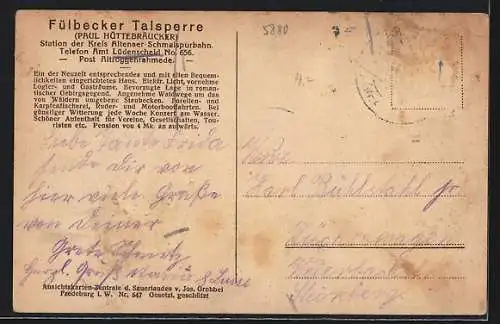 Fülbecker Talsperre
(PAUL HÜTTEBRÄUCKER)
Station der Kreis Altenaer-Schmalspurbahn.
Telefon Amt Lüdenscheid No. 656.
Post Altroggenrahmede.
Ein der Neuzeit entsprechendes und mit allen Bequem-
lichkeiten eingerichtetes Haus. Elektr. Licht, vornehme
Logier- und Gasträume. Bevorzugte Lage in roman-
tischer Gebirgsgegend. Angenehme Waldwege um das
von Wäldern umgebene Staubecken. Forellen- und
Karpfenfischerei, Ruder- und Motorbootfahrten. Bei
günstiger Witterung jede Woche Konzert am Wasser.
Schöner Aufenthalt für Vereine, Gesellschaften, Tou-
risten etc. Pension von 4 Mk. an aufwärts.
5880
4.-
Liebe Tante Frida
sende Dir von
hier viele Grüße
von Deiner
Grete
Herzl. Gruß
Karl
Nürnberg
Ansichtskarten-Zentrale d. Sauerlandes v. Jos. Grobbel
Fredeburg i. W. Nr. 547 Gesetzl. geschützt